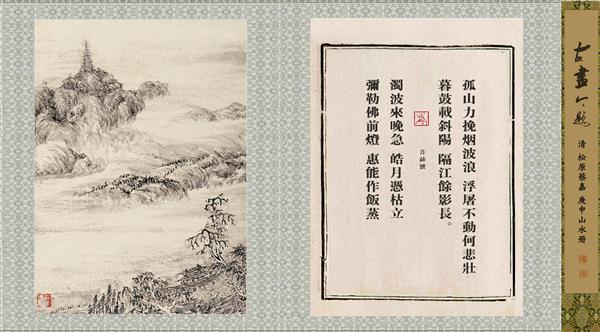 孤山力挽烟波浪 浮屠不動何悲壯
暮鼓載斜陽 隔江餘影長。
菩薩蠻
濁波來晚急 皓月憑枯立
彌勒佛前燈 惠能作飯蒸
古畫今題
清 松原蔡嘉 庚申山水冊